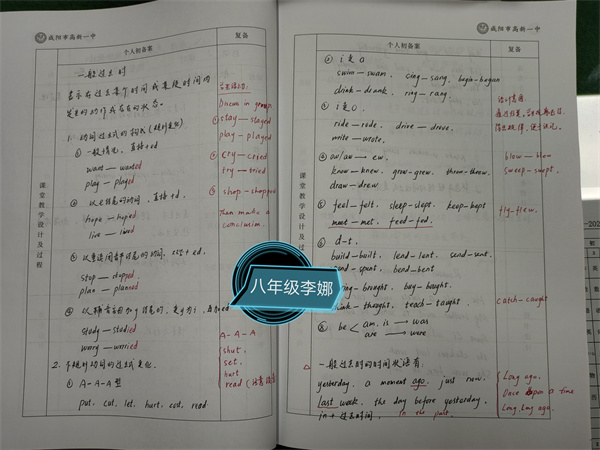 咸阳市高新一中
个人初备案
复备
课堂教学设计及过程
一般过去时
表示在过去某个时间或某段时间内
发生的动作或存在的状态。
1. 动词过去式的构成(规则变化)
① 一般情况,直接+ed
want — wanted
play — played
② 以e结尾的动词,直接+d.
hope — hoped
live — lived
stop — stopped
plan — planned
study — studied
worry — worried
2. 不规则动词的过去式变化.
① A-A-A型
put, cut, let, hurt, cost, read
Discuss in groups
① stay — stayed
play — played
② cry — cried
try — tried
③ shop — shopped
Then made a
conclusion.
A-A-A
shut,
set,
hurt
read
八年级李娜
咸阳市高新一中
个人初备案
复备
课堂教学设计及过程
② i变a
swim — swam, sing — sang, begin — began
drink — drank, ring — rang
③ i变o.
ride — rode, drive — drove,
write — wrote,
④ ow/aw — ew.
know — knew, grow — grew, throw — threw,
draw — drew
⑤ feel — felt, sleep — slept, keep — kept
meet — met, feed — fed.
⑥ d-t.
build — built, lend — lent, send — sent
spent, bend — bent
brought, buy — bought,
thought, teach — taught.
⑧ be am. is → was
are → were
一般过去时的时间状语有:
yesterday, a moment ago, just now,
last week, the day before yesterday,
in + 过去时间, in the past.
blow — blew
sweep — swept.
fly — flew.
catch — caught
Long ago,
Once upon a time
Long long ago.